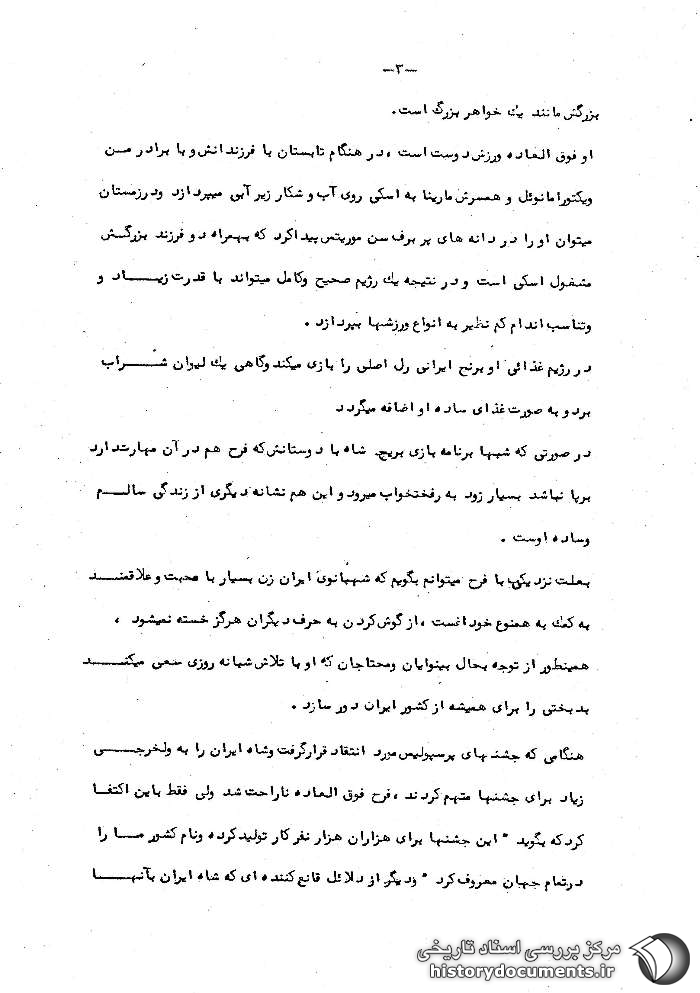 -۳-
بزرگش مانند یك خواهر بزرگ است.
او فوق العاده ورزش دوست است ، در هنگام تابستان با فرزندانش و با برادر من
ویکتورامانوئل و همسرش مارینا به اسکی روی آب و شکار زیر آبی میپردازد ودرزمستان
میتوان او را در دانه های پر برف سن موریتس پیدا کرد که بهمراه دو فرزند بزرگش
مشغول اسکی است و در نتیجه یك رژیم صحیح وکامل میتواند با قدرت زیاد و
وتناسب اندام کم نظیر به انواع ورزشها بپردازد .
در رژیم غذائی او برنج ایرانی رل اصلی را بازی میکند وگاهی یك لیوان شراب
برد و به صورت غذای ساده او اضافه میگردد
در صورتی که شبها برنامه بازی بریج شاه با دوستانش که فرح هم در آن مهارت دارد
برپا نباشد بسیار زود به رفتختخواب میرود و این هم نشانه دیگری از زندگی سالم
وساده اوست .
بعلت نزدیکی با فرح میتوانم بگویم که شهبانوی ایران زن بسیار با محبت و علاقمند
به کمك به همنوع خود است ، از گوش کردن به حرف دیگران هرگز خسته نمیشود ،
همینطور از توجه بحال بینوایان ومحتاجان که او با تلاش شبانه روزی سعی میکند
بدبختی را برای همیشه از کشور ایران دور سازد .
هنگامی که جشنهای پرسپولیس مورد انتقاد قرار گرفت وشاه ایران را به ولخرجی
زیاد برای جشنها متهم کردند ، فرح فوق العاده ناراحت شد ولی فقط باین اکتفا
کرد که بگوید " این جشنها برای هزاران هزار نفر کار تولید کرده ونام کشور ما را
درتمام جهان معروف کرد " ودیگر از دلائل قانع کننده ای که شاه ایران بآنها
مرکز بررسی اسناد تاریخی
historydocuments.ir